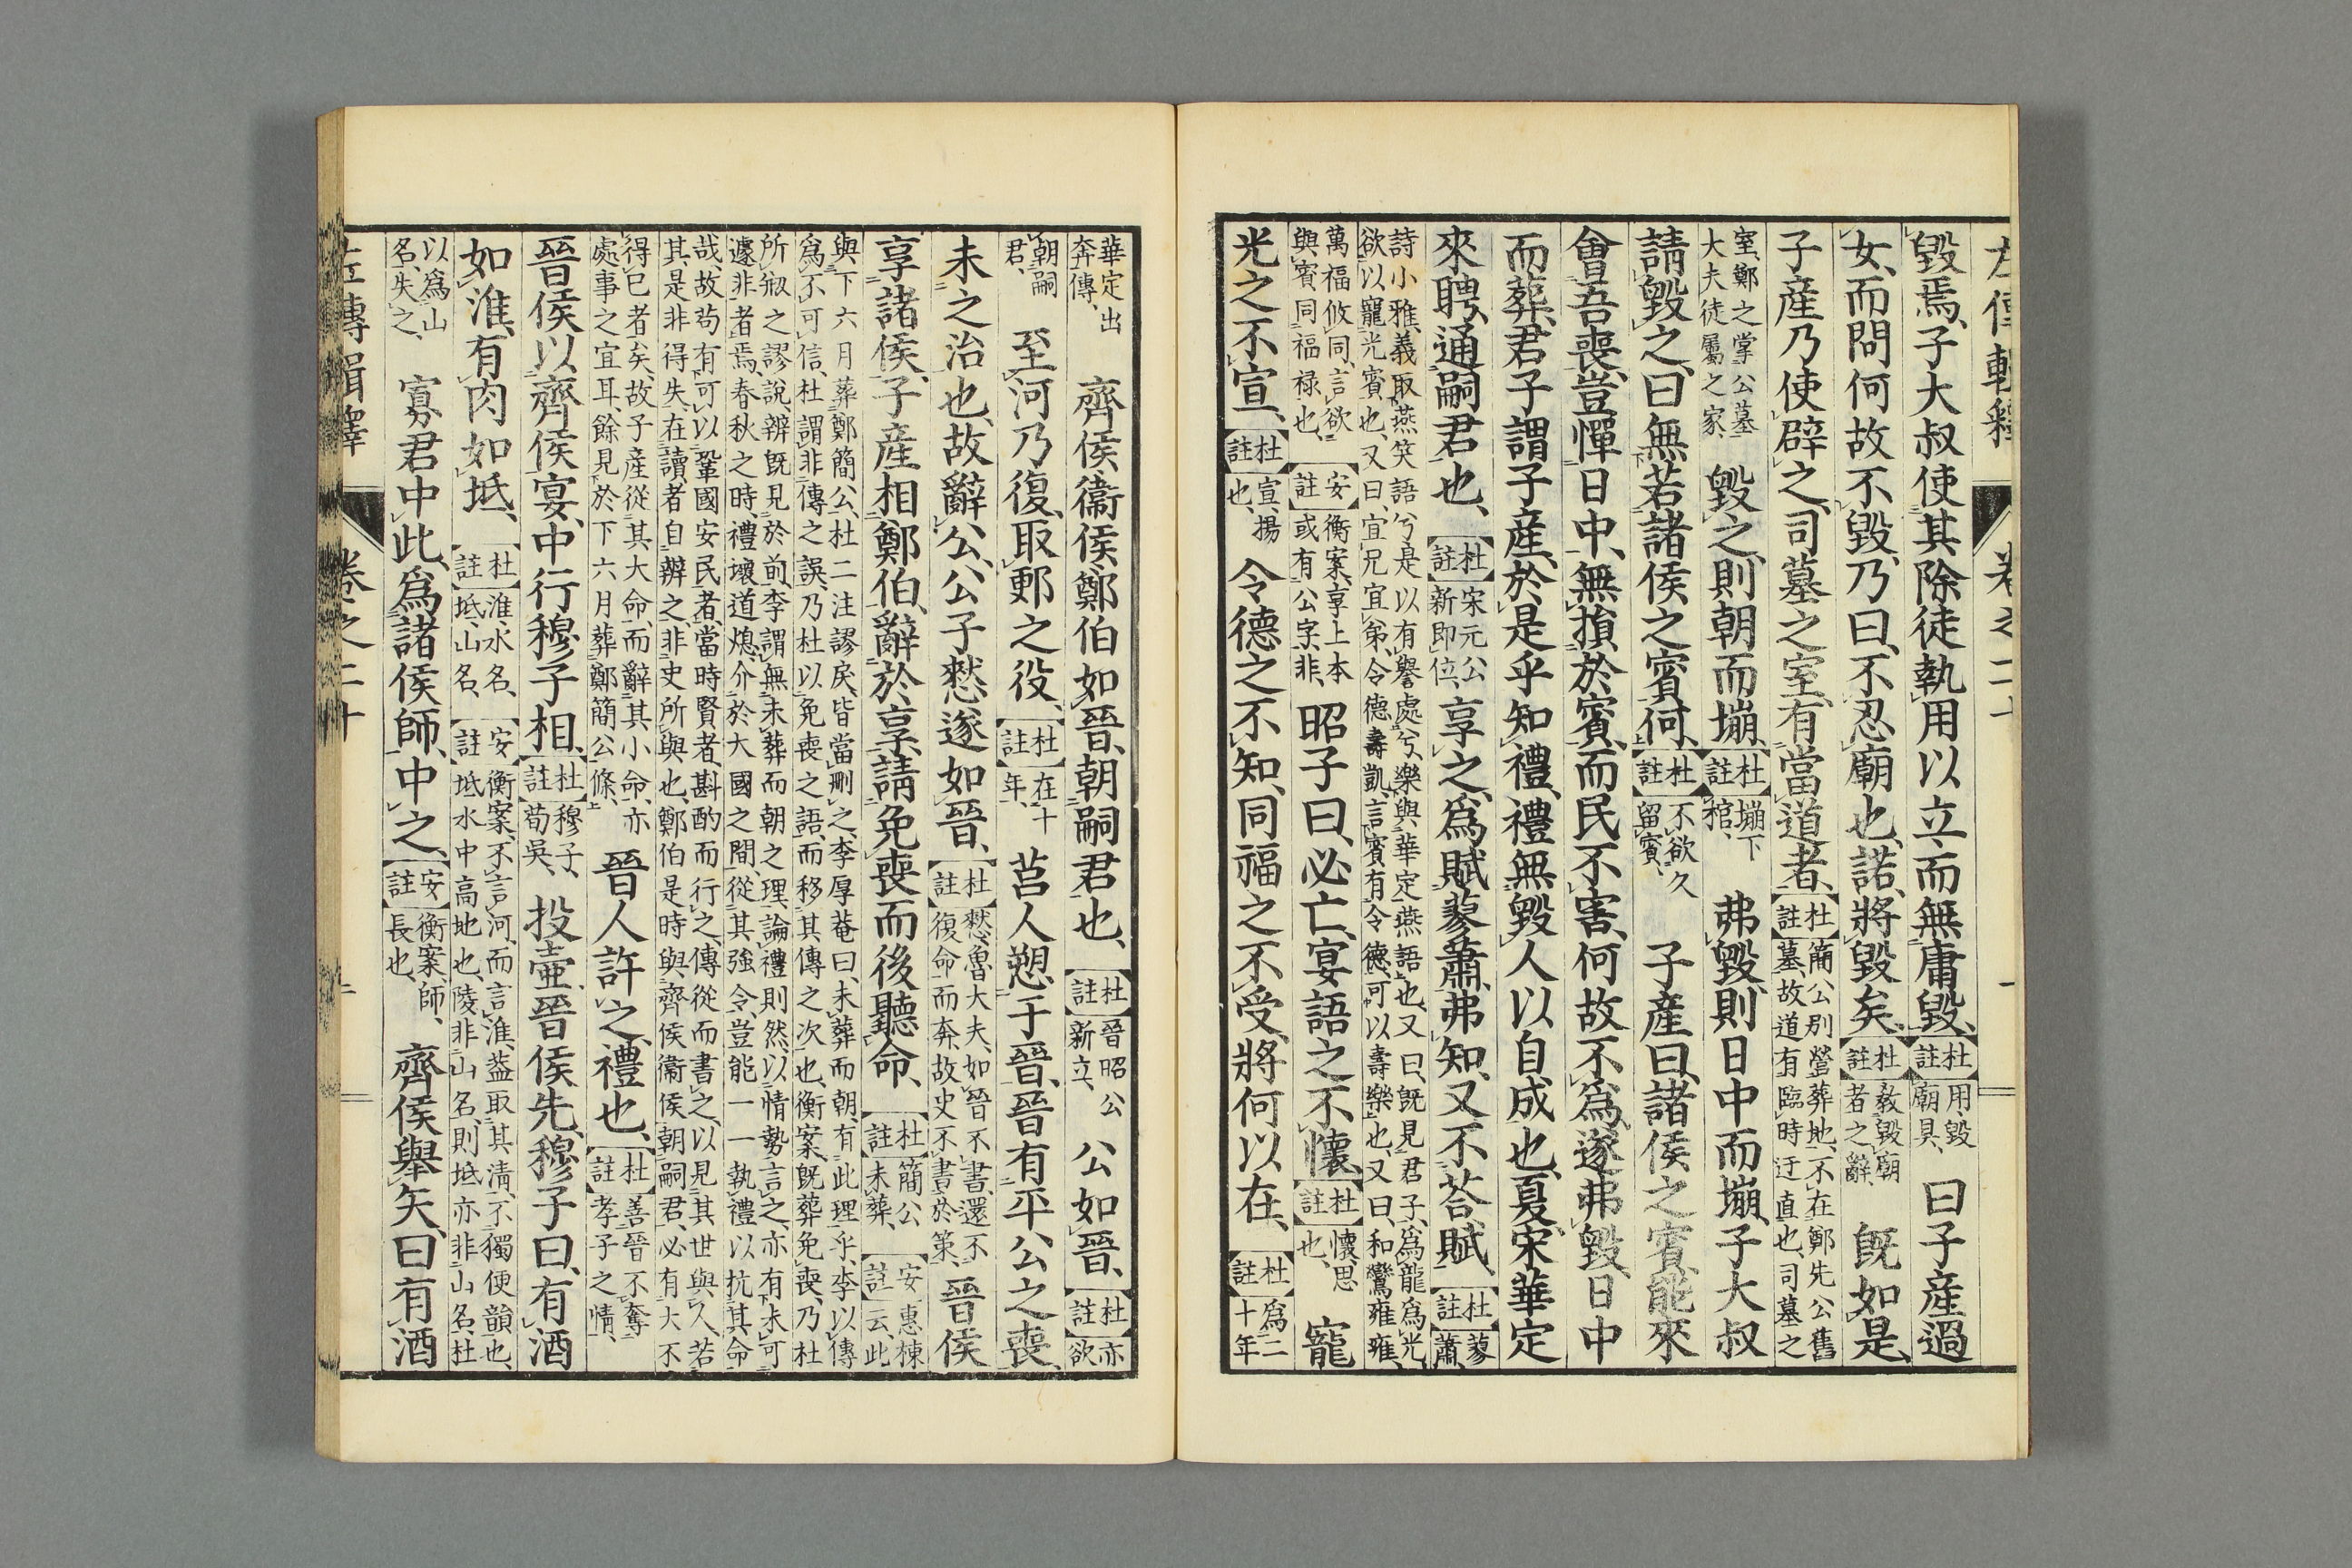 左傳輯釋 卷之二十
毀焉、子大叔使其除徒執用以立、而無庸毀、【杜註】用、毀廟具、曰子產過
女、而問何故不毀、乃曰、不忍廟也、諾、將毀矣、【杜註】敎毀廟者之辭、旣如是、
子產乃使辟之、司墓之室、有當道者、【杜註】簡公別營葬地、不在鄭先公舊墓、故道有臨時迂直也、司墓之
室、鄭之掌公墓大夫徒屬之家、毀之、則朝而塴、【杜註】塴下棺、弗毀、則日中而塴、子大叔
請毀之、曰、無若諸侯之賓何、【杜註】不欲久留賓、子產曰、諸侯之賓、能來
會吾喪、豈憚日中、無損於賓、而民不害、何故不爲、遂弗毀、日中
而葬、君子謂子產、於是乎知禮、禮無毀人以自成也、夏、宋華定
來聘、通嗣君也、【杜註】宋元公新即位、享之、爲賦蓼蕭、弗知、又不荅賦、【杜註】蓼蕭、
詩小雅、義取燕笑語兮是以有譽處兮、樂與華定燕語也、又曰、旣見君子、爲龍爲光、欲以寵光賓也、又曰、宜兄宜弟、令德壽凱、言賓有令德、可以壽樂也、又曰、和鸞雍雍、
萬福攸同、言欲與賓同福禄也、【安註】衡案、享上本或有公字、非、昭子曰、必亡、宴語之不懷、【杜註】懷、思也、寵
光之不宣、【杜註】宣、揚也、令德之不知、同福之不受、將何以在、【杜註】爲二十年
華定出奔傳、齊侯衞侯鄭伯如晉、朝嗣君也、【杜註】晉昭公新立、公如晉、【杜註】亦欲
朝嗣君、至河乃復、取郠之役、【杜註】在十年、莒人愬于晉、晉有平公之喪、
未之治也、故辭公、公子憖遂如晉、【杜註】憖、魯大夫、如晉不書、還不復命而奔、故史不書於策、晉侯
享諸侯、子產相鄭伯、辭於享、請免喪而後聽命、【杜註】簡公未葬、【安註】惠棟云、此
與下六月葬鄭簡公、杜二注謬戾、皆當刪之、李厚菴曰、未葬而朝、有此理乎、李以傳爲不可信、杜謂非傳之誤、乃杜以免喪之語、而移其傳之次也、衡案、旣葬免喪、乃杜
所剏之謬說、辨旣見於前、李謂無未葬而朝之理、論禮則然、以情勢言之、亦有未可遽非者焉、春秋之時、禮壞道熄、介於大國之間、從其強令、豈能一一執禮以抗其命
哉、故苟有可以鞏國安民者、當時賢者斟酌而行之、傳從而書之、以見其世與人、若其是非得失、在讀者自辨之、非史所與也、鄭伯是時與齊侯衞侯朝嗣君、必有大不
得已者矣、故子產從其大命、而辭其小命、亦處事之宜耳、餘見於下六月葬鄭簡公條、晉人許之、禮也、【杜註】善晉不奪孝子之情、
晉侯以齊侯宴、中行穆子相、【杜註】穆子、荀吳、投壺、晉侯先、穆子曰、有酒
如淮、有肉如坻、【杜註】淮、水名、坻、山名、【安註】衡案、不言河、而言淮、葢取其淸、不獨便韻也、坻水中高地也、陵非山名、則坻亦非山名、杜
以爲山名、失之、寡君中此、爲諸侯師、中之、【安註】衡案、師、長也、齊侯舉矢、曰有酒
左傳輯釋 卷之二十